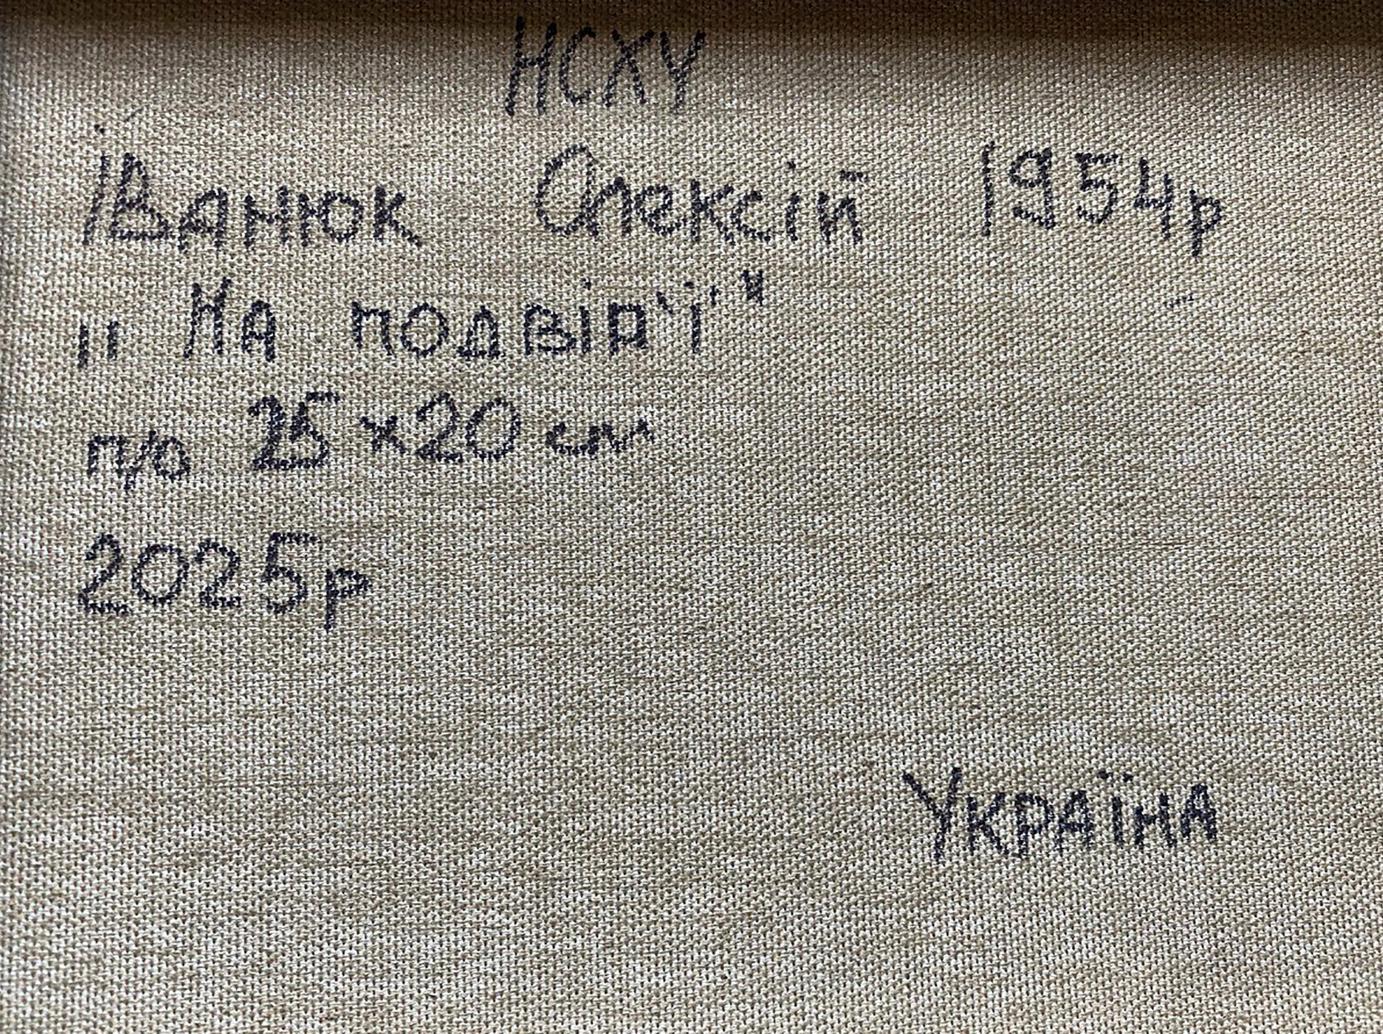 НСХУ
Іванюк Олексій 1954р
" На подвір'ї"
п/о 25×20 см
2025р
Україна